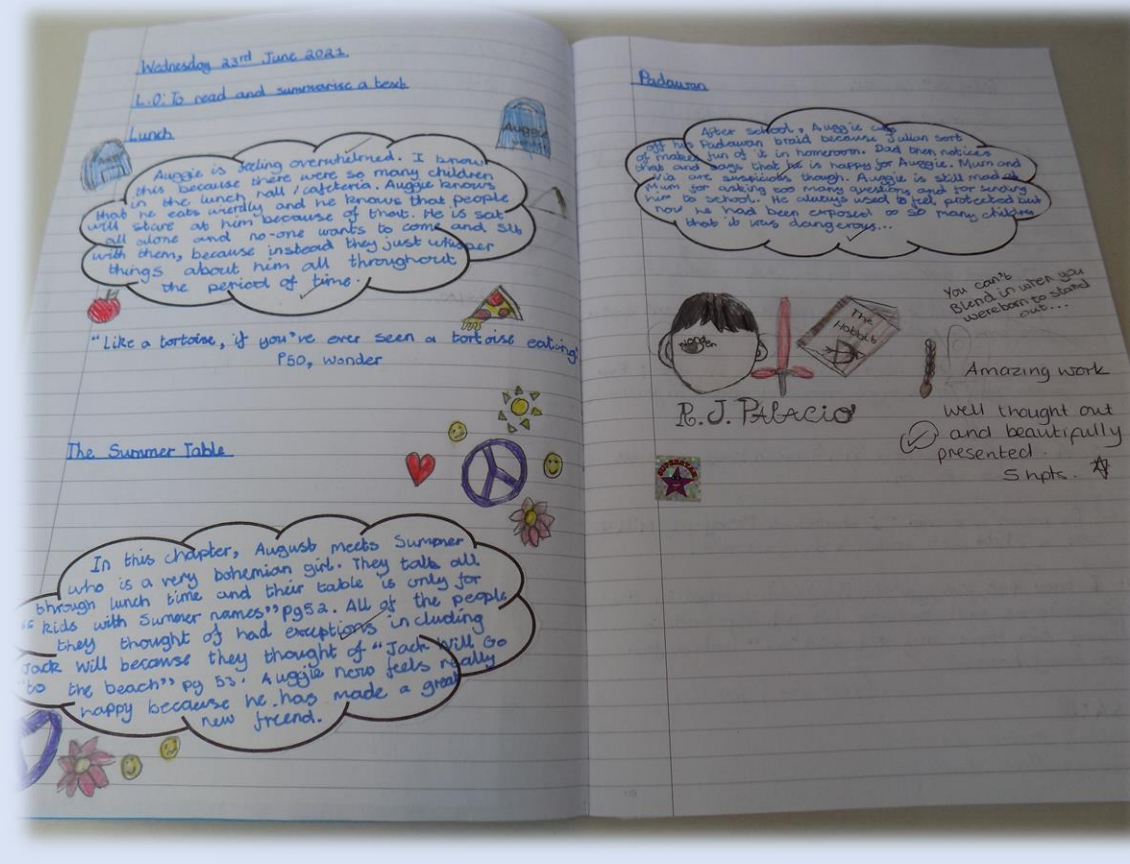 Wednesday 23rd June 2021
L.O: To read and summarise a text
Lunch
Auggie
Auggie is feeling overwhelmed. I know
this because there were so many children
in the lunch hall / cafeteria. Auggie knows
that he eats wierdly and he knows that people
will stare at him because of that. He is sat
all alone and no-one wants to come and sit
with them, because instead they just whisper
things about him all throughout
the period of time.
"Like a tortoise, if you've ever seen a tortoise eating"
P50, wonder
The Summer Table
In this chapter, August meets Summer
who is a very bohemian girl. They talk all
through lunch time and their table is only for
"kids with Summer names" pg52. All of the people
they thought of had exceptions including
Jack Will because they thought of "Jack Will Go
to the beach" pg 53. Auggie now feels really
happy because he has made a great
new friend.
Padawan
After school, Auggie cuts
off his Padawan braid because Julian sort
of makes fun of it in homeroom. Dad then notices
that and says that he is happy for Auggie. Mum and
Via are suspicious though. Auggie is still mad at
Mum for asking too many questions and for sending
him to school. He always used to feel protected but
now he had been exposed to so many children
that it was dangerous...
You can't
Blend in when you
were born to stand
out...
Wonder
The
Hobbit
R.J. PALACIO
Amazing work
Well thought out
and beautifully
presented.
5 hpts.
SUPERSTAR